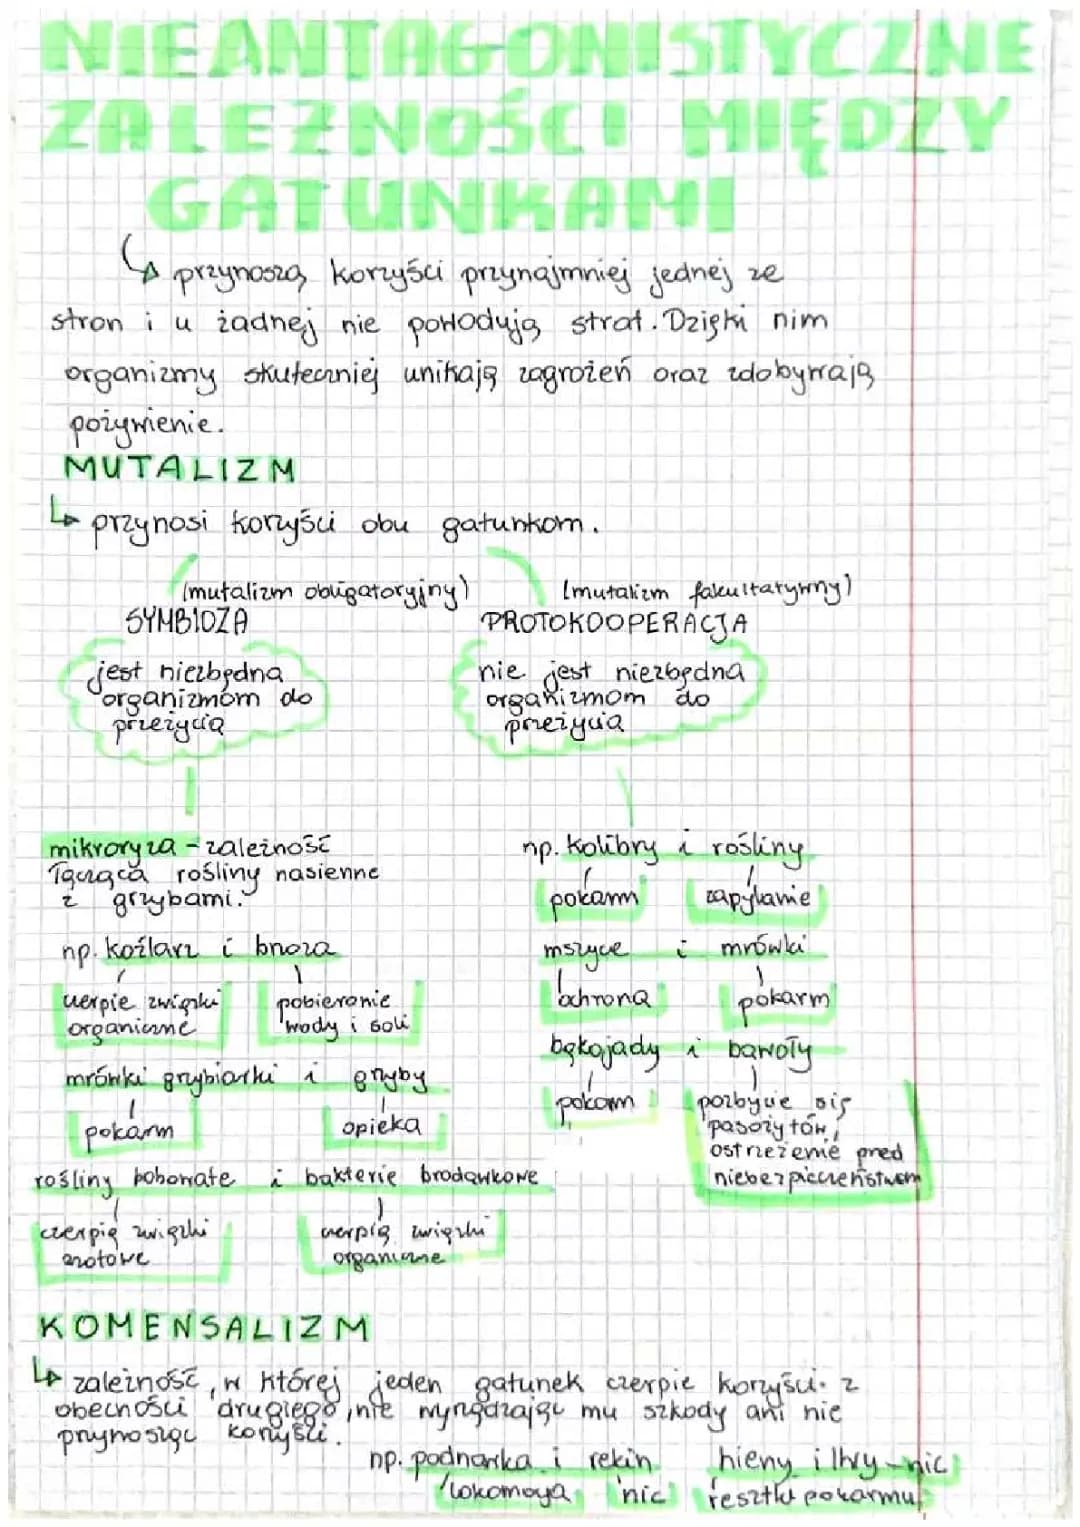 NIEANTAGONISTYCZNE
ZALEŻNOŚCI MIĘDZY
GATUNKAMI
przynoszą korzyści przynajmniej jednej ze
stron i u żadnej nie powodują strat. Dzięki nim
organizmy skuteczniej unikają zagrożeń oraz zdobywają
pożywienie.
MUTALIZM
przynosi korzyści obu gatunkom.
(mutalizm obligatoryjny) (mutalizm fakultatywny)
SYMBIOZA PROTOKOOPERACJA
jest niezbędna nie jest niezbędna
organizmom do organizmom do
przeżycia przeżycia
mikroryza - zależność np. kolibry i rośliny
łącząca rośliny nasienne
z grzybami. pokarm zapylanie
np. koźlarz i brzoza mszyce i mrówki
czerpie związki pobieranie ochrona pokarm
organiczne wody i soli
bąkojady i bawoły
mrówki grzybiarki i grzyby
pokarm pozbycie się
pokarm opieka pasożytów,
ostrzeżenie pred
rośliny bobowate i bakterie brodawkowe niebezpieczeństwem
czerpią związki czerpią związki
azotowe organiczne
KOMENSALIZM
zależność, w której jeden gatunek czerpie korzyści z
obecności drugiego, nie wyrządzając mu szkody ani nie
przynosząc korzyści.
np. podnawka i rekin hieny i lwy - nic
lokomocja nic resztki pokarmu